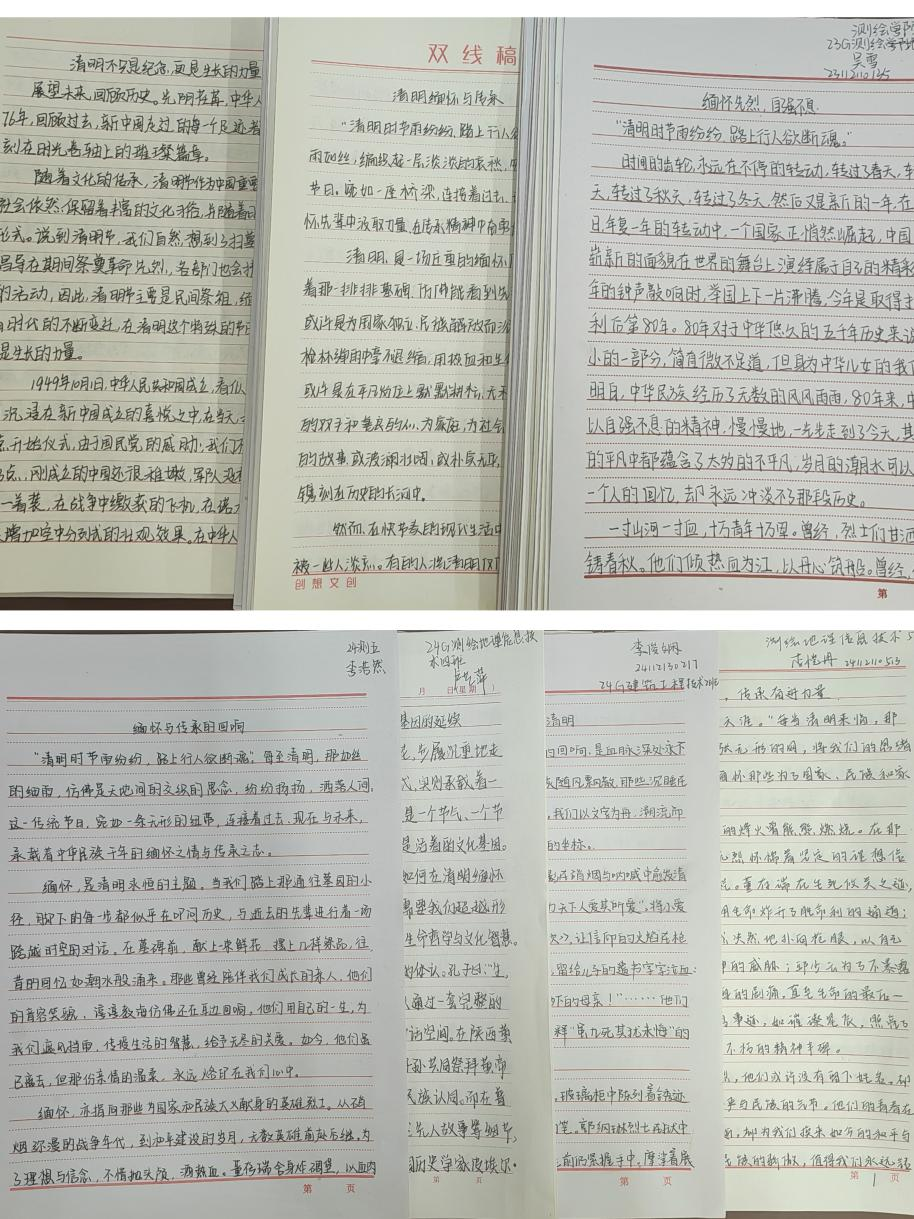 清明不只是纪念,更是生长的力量
展望未来,回顾历史。光阴荏苒,中华人
76年,回顾过去,新中国走过的每一个足迹都
刻在时光卷轴上的璀璨篇章。
随着文化的传承,清明节作为中国重要
社会依然保留着丰富的文化习俗,并随着时
形式。说到清明节,我们自然想到了扫墓
倡导在期间祭奠革命先烈,各部门也会
的活动,因此,清明节主要是民间祭祖,缅
时代的不断变迁,在清明这个特殊的节日
是生长的力量。
1949年10月1日,中华人民共和国成立,看似
沉浸在新中国成立的喜悦之中,在当天
开始仪式,由于国民党的威胁,我们不
点,刚成立的中国还很稚嫩,军队没有
一着装,在战争中缴获的飞机,在
增加空中分列式的壮观效果。在中华人
双线稿
清明缅怀与传承
“清明时节雨纷纷,路上行人
雨如丝,编织起一层淡淡的哀愁,
节日。宛如一座桥梁,连接着过去、
怀先辈中汲取力量,在传承精神中
清明,是一场庄重的缅怀
着那一排排墓碑,仿佛能看到先
或许是为国家独立、民族解放而
枪林弹雨中毫不退缩,用热血和生
或许是在平凡岗位上默默耕耘,
的双手和善良的心,为家庭,为社会
的故事,或波澜壮阔,或朴实无华,
镌刻在历史的长河中。
然而,在快节奏的现代生活中
被一些人淡忘。有的人将清明
创想文创
测绘学院
吴雪
缅怀先烈,自强不息
“清明时节雨纷纷,路上行人欲断魂。”
时间的齿轮,永远在不停的转动,转过了春天,转
天,转过了秋天,转过了冬天,然后又是新的一年。在
日年复一年的转动中,一个国家正悄然崛起,中国
崭新的面貌在世界的舞台上演绎属于自己的精彩
年的钟声敲响时,举国上下一片沸腾,今年是取得
利后第80年。80年对于中华悠久的五千年历来说
小的一部分,简直微不足道,但身为中华儿女的我
明白,中华民族经历了无数的风风雨雨,80年来,中
以自强不息的精神,慢慢地,一步步走到了今天,其
的平凡中都蕴含了太多的不平凡,岁月的潮水可以
一个人的回忆,却永远冲淡不了那段历史。
一寸山河一寸血,十万青年十万军。曾经,烈士们甘洒
铸春秋。他们倾热血为江,以丹心筑船。曾经,
第
24测五
李浩然
缅怀与传承的回响
“清明时节雨纷纷,路上行人欲断魂”每至清明,那如丝
的细雨,仿佛是天地间的交织的思念,纷纷扬扬,洒落人间。
这一传统节日,宛如一条无形的纽带,连接着过去、现在与未来,
承载着中华民族千年的缅怀之情与传承之志。
缅怀,是清明永恒的主题。当我们踏上那通往墓园的小
径,脚下的每一步都似乎在叩问历史,与逝去的先辈进行着一场
跨越时空的对话。在墓碑前,献上一束鲜花,摆上几样祭品,往
昔的回忆如潮水般涌来。那些曾经陪伴我们成长的亲人,他们
的音容笑貌、谆谆教诲仿佛还在耳边回响,他们用自己的一生,为
我们遮风挡雨,传授生活的智慧,给予无尽的关爱。如今,他们虽
已离去,但那份亲情的温柔,永远烙印在我们心中。
缅怀,亦指向那些为国家和民族大义献身的英雄烈士。从硝
烟弥漫的战争年代,到和平建设的岁月,无数英雄前赴后继,为
了理想与信念,不惜抛头颅,洒热血。董存瑞舍身炸碉堡,以血肉
第 页
24G测绘地理信息技
术四班
月 日(星期 )
基因的延续
,步履沉重地走
是一个节气、一个节
是活着的文化基因。
如何在清明缅怀
帮助我们超越形
生命哲学与文化智慧。
的体认。孔子曰:“生,
通过一套完整的
话空间。在陕西黄
孙共同祭拜黄帝
民族认同。而在普
先人故事等细节,
第 页
24112130217
24G建筑工程技术
清明
的回响,是血脉深处永不
随风飘散,那些沉睡在
,我们以文字为舟,溯流而
的坐标。
在硝烟与呐喊中愈发清
为天下人爱其所爱”,将小爱
,让信仰的火焰在枪
留给儿子的遗书字字泣血:
下的母亲!”……他们
释“虽九死其犹未悔”的
,玻璃柜中陈列着锈迹
笔。郭纲琳烈士在狱中
前仍紧握手中,摩挲着
第 页
测绘地理信息技术5
24112110513
,传承奋进力量
天涯。”每当清明来临,那
张无形的网,将我们的思绪
缅怀那些为了国家、民族和家
的烽火署熊熊燃烧。在那
怀揣着坚定的理想信
。董存瑞在生死攸关之际,
用生命炸开了胜利的通道;
决然地扑向枪眼,以自己
的威胁;邱少云为了不暴露
的剧痛,直至生命的最后一
事迹,如璀璨星辰,照亮了
不朽的精神丰碑。
,他们或许没有留下姓名,却
来与民族的
,却为我们换来如今的和平与
民族的骄傲,值得我们永远
第 1 页